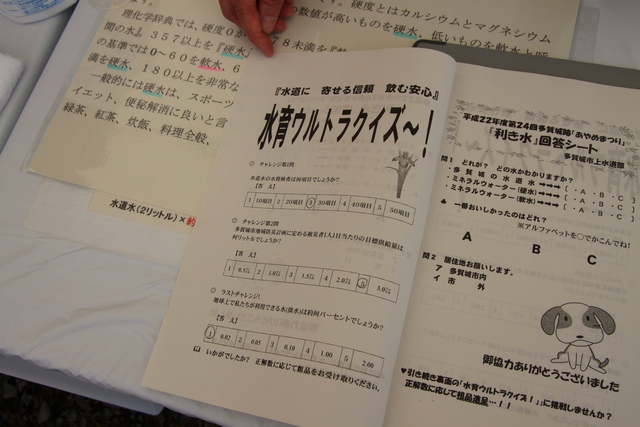 硬度とはカルシウムとマグネシウム
の数値が高いものを硬水、低いものを軟水と
理化学辞典では、硬度
間の水』３５７以上を『硬水
の基準では０～６０を軟水、６
満を硬水、１８０以上を非常な
一般的には硬水は、スポーツ
イエット、便秘解消に良いと言
緑茶、紅茶、炊飯、料理全般、
水道水（２リットル）×約
『水道に 寄せる信頼 飲む安心』
水育ウルトラクイズ～！
○ チャレンジ第1問
水道水の水質検査は何項目でしょうか？
【答え】
1 10項目 2 20項目 ③ 30項目 4 40項目 5 50項目
○ チャレンジ第2問
多賀城市地域防災計画に定める被災者1人1日当たりの目標供給量は
何リットルでしょうか？
【答え】
1 0.5㍑ 2 1.0㍑ 3 1.5㍑ 4 2.0㍑ ⑤ 3.0㍑
○ ラストチャレンジ！
地球上で私たちが利用できる水(淡水)は約何パーセントでしょうか？
【答え】
① 0.02 2 0.05 3 0.10 4 1.00 5 2.00
いかがでしたか？ 正解数に応じて粗品をお受け取りください。
平成22年度第24回多賀城跡「あやめまつり」
「利き水」回答シート
多賀城市上水道部
問１ どれが？ どの水かわかりますか？
・多賀城の水道水 ➡➡➡ （・A・B・C）
・ミネラルウォーター(硬水) ➡➡➡ （・A・B・C）
・ミネラルウォーター(軟水) ➡➡➡ （・A・B・C）
♣ 一番おいしかったのはどれ？
※アルファベットを○でかこんでね！
A B C
問２ 居住地お願いします。
ア 多賀城市内
イ 市 外
御協力ありがとうございました
♥引き続き裏面の「水育ウルトラクイズ！」に挑戦しませんか？
正解数に応じて粗品進呈…！！